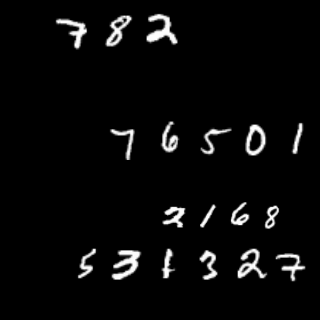 782
76501
2168
531327